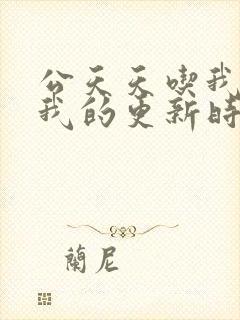 公天天喫我
我的更新時
蘭尼